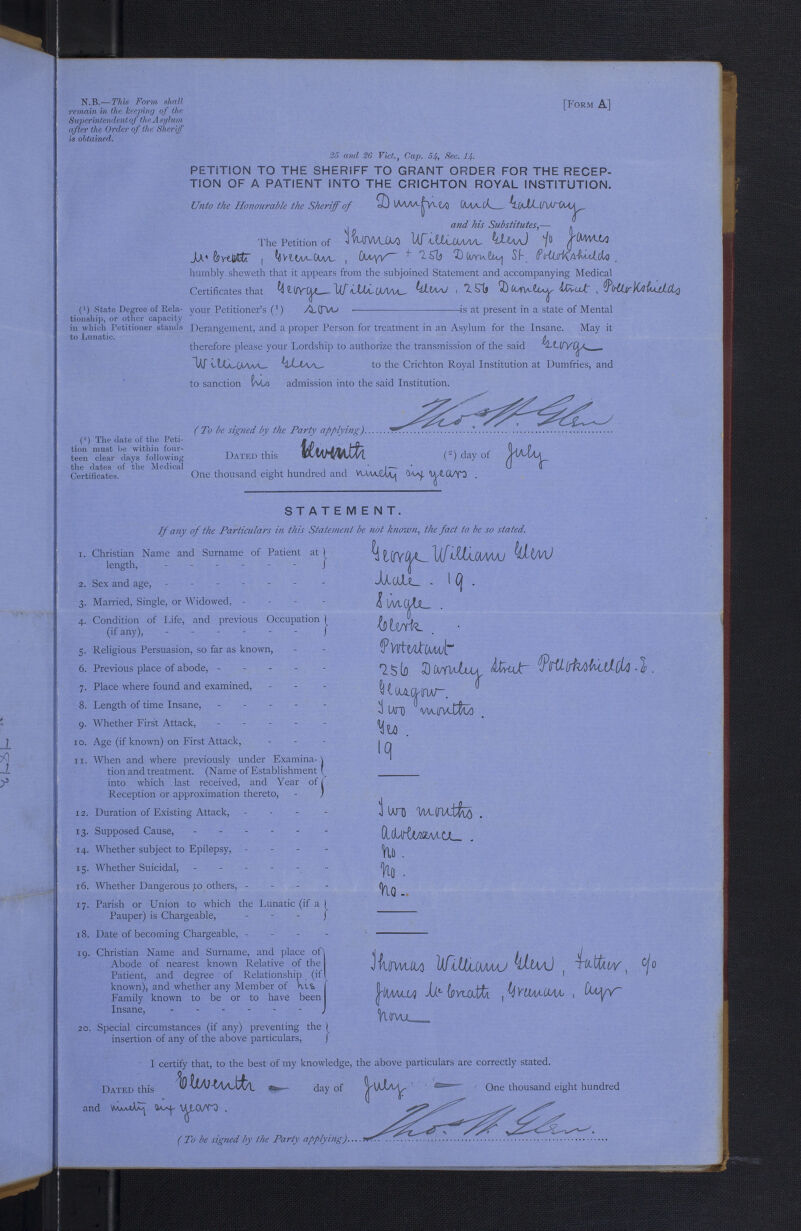 N.B.—This Form shall
remain in the keeping of the
Superintendent of the Asylum
after the Order of the Sheriff
is obtained.
[Form A]
25 and 26 Vict., Cap. 54, Sec. 14.
PETITION TO THE SHERIFF TO GRANT ORDER FOR THE RECEP-
TION OF A PATIENT INTO THE CRICHTON ROYAL INSTITUTION.
Unto the Honourable the Sheriff of Dumfries and Galloway
and his Substitutes,—
The Petition of Thomas William Glen c/o James
McCreath, Greenan, Ayr + 256 Darnley St. Pollokshields.
humbly sheweth that it appears from the subjoined Statement and accompanying Medical
Certificates that George William Glen, 256 Darnley Street, Pollokshields
(¹) State Degree of Rela-
tionship, or other capacity
in which Petitioner stands
to Lunatic.
your Petitioner's (¹) son is at present in a state of Mental
Derangement, and a proper Person for treatment in an Asylum for the Insane. May it
therefore please your Lordship to authorize the transmission of the said George
William Glen to the Crichton Royal Institution at Dumfries, and
to sanction his admission into the said Institution.
(To be signed by the Party applying) Thos. W. Glen
(²) The date of the Peti-
tion must be within four-
teen clear days following
the dates of the Medical
Certificates.
Dated this Eleventh (²) day of July
One thousand eight hundred and ninety six years.
STATEMENT.
If any of the Particulars in this Statement be not known, the fact to be so stated.
1. Christian Name and Surname of Patient at
length, - - - - - - - George William Glen
2. Sex and age, - - - - - - - Male. 19.
3. Married, Single, or Widowed, - - - - Single.
4. Condition of Life, and previous Occupation
(if any), - - - - - - Clerk.
5. Religious Persuasion, so far as known, - - Protestant
6. Previous place of abode, - - - - - 256 Darnley Street Pollokshields. E.
7. Place where found and examined, - - - Glasgow.
8. Length of time Insane, - - - - - Two months.
9. Whether First Attack, - - - - - Yes.
10. Age (if known) on First Attack, - - - 19
11. When and where previously under Examina-
tion and treatment. (Name of Establishment
into which last received, and Year of
Reception or approximation thereto, - ——
12. Duration of Existing Attack, - - - - Two months.
13. Supposed Cause, - - - - - - Adolescence.
14. Whether subject to Epilepsy, - - - - No.
15. Whether Suicidal, - - - - - - No.
16. Whether Dangerous to others, - - - - No.
17. Parish or Union to which the Lunatic (if a
Pauper) is Chargeable, - - - ——
18. Date of becoming Chargeable, - - - - ——
19. Christian Name and Surname, and place of
Abode of nearest known Relative of the
Patient, and degree of Relationship (if
known), and whether any Member of his
Family known to be or to have been
Insane, - - - - - -
Thomas William Glen, Father, c/o
James McCreath, Greenan, Ayr
None
20. Special circumstances (if any) preventing the
insertion of any of the above particulars,
I certify that, to the best of my knowledge, the above particulars are correctly stated.
Dated this Eleventh day of July One thousand eight hundred
and ninety six years.
(To be signed by the Party applying) Thos. W. Glen.